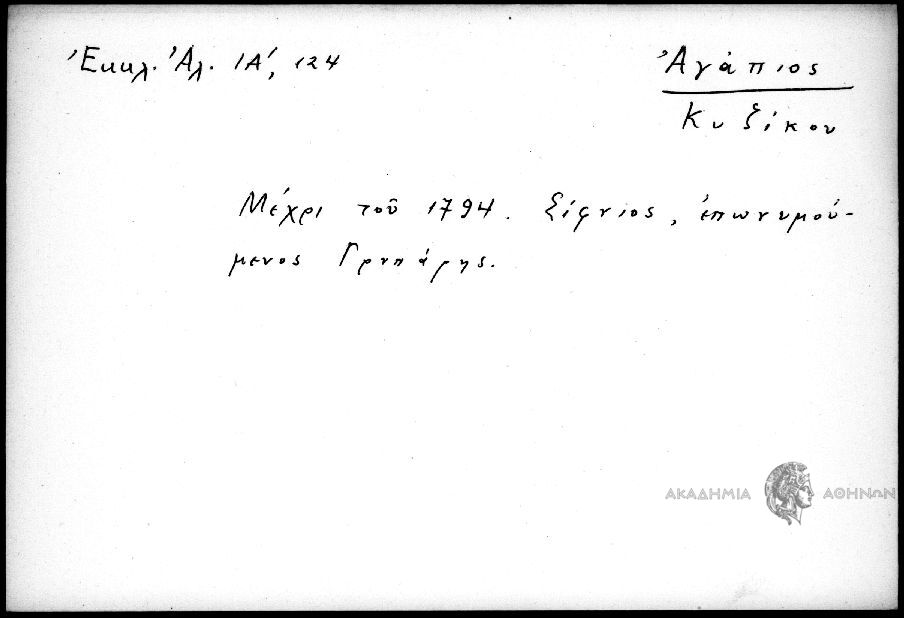 Ἐκκλ. Ἀλ. ΙΑ΄, 124
Ἀγάπιος
Κυζίκου
Μέχρι τοῦ 1794. Σίφνιος, ἐπωνυμού-
μενος Γρυπάρης.
ΑΚΑΔΗΜΙΑ ΑΘΗΝΩΝ